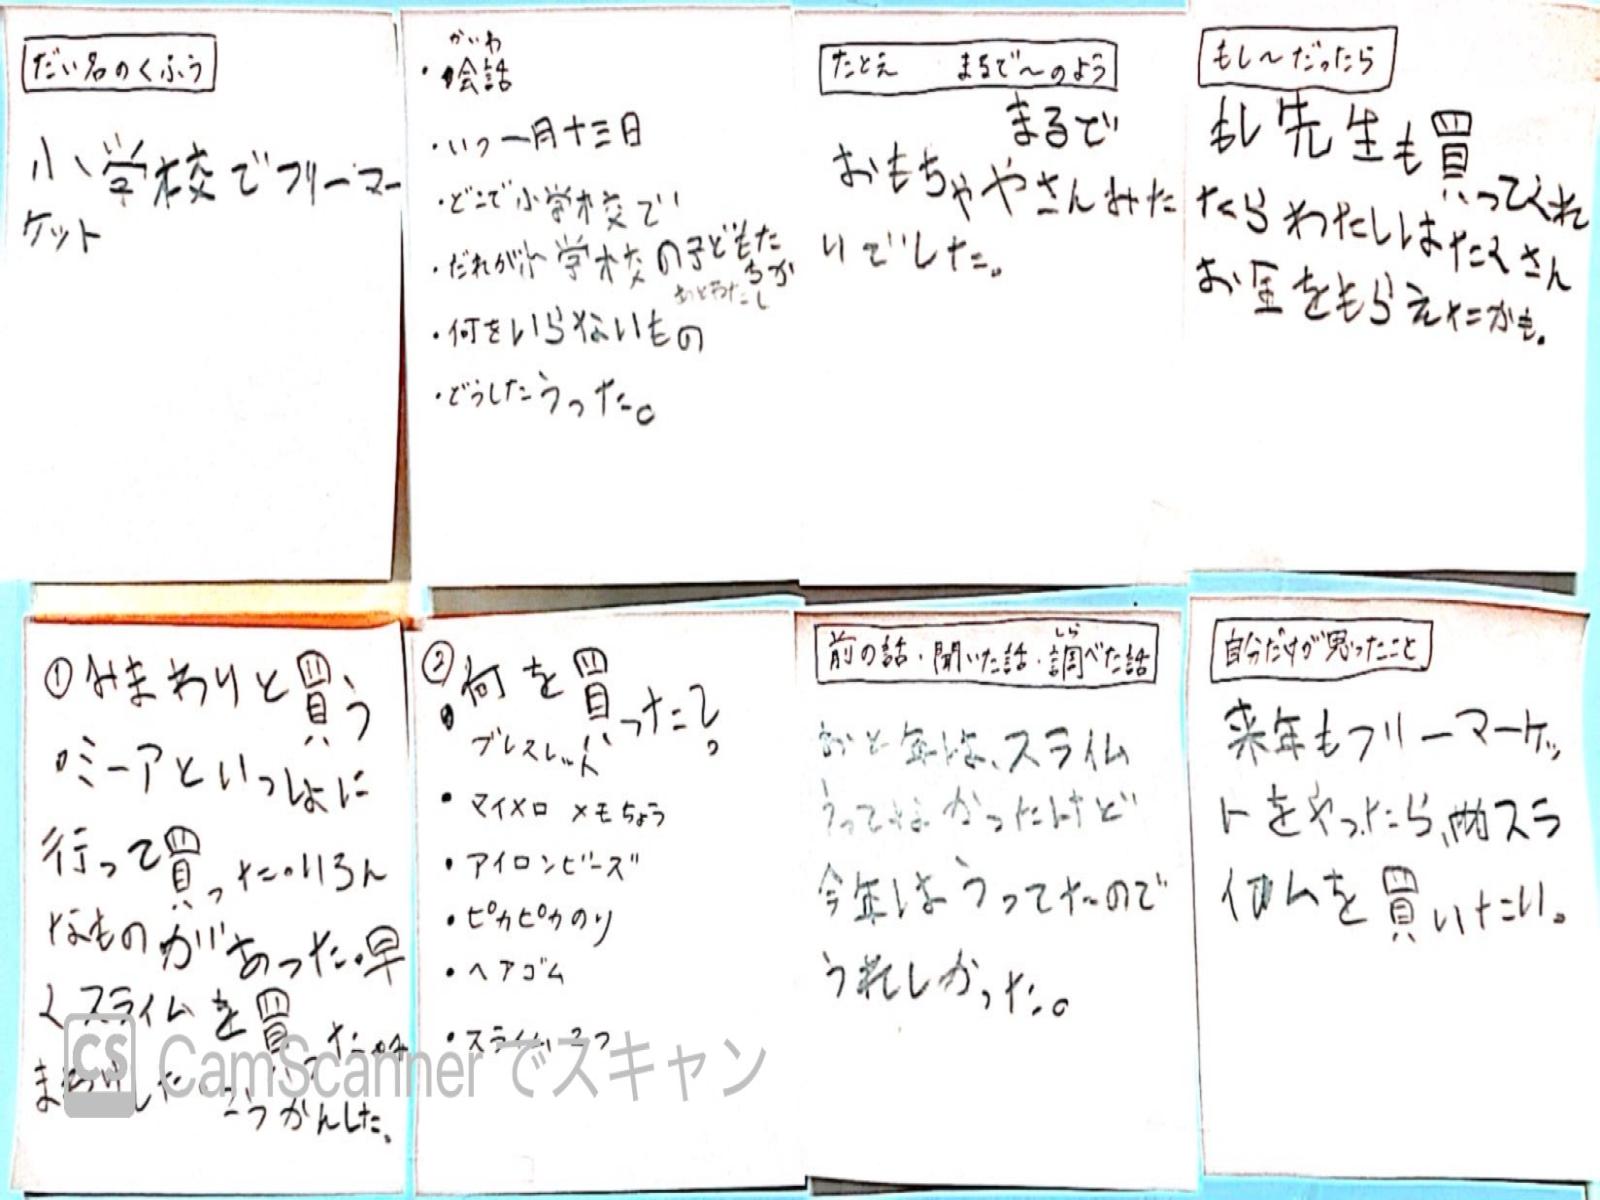 だい名のくふう
小学校でフリーマー
ケット
かいわ
・会話
・いつ一月十三日
・どこで小学校で
・だれが小学校の子どもた
ちが
あとわたし
・何をいらないもの
・どうしたうった。
たとえ まるで〜のよう
まるで
おもちゃやさんみた
いでした。
もし〜だったら
もし先生も買ってくれ
たらわたしはたくさん
お金をもらえたかも。
①みまわりと買う
・ミーアといっしょに
行って買った。いろん
なものがあった。早
くスライムを買った。み
まわりした
こうかんした。
②何を買った?
・ブレスレット
・マイメロ メモちょう
・アイロンビーズ
・ピカピカのり
・ヘアゴム
・スライム
前の話・聞いた話・調べた話
しら
おと年は、スライム
うってなかったけど
今年はうってたので
うれしかった。
自分だけが思ったこと
来年もフリーマーケッ
トをやったら、スラ
イムを買いたい。
CS CamScannerでスキャン